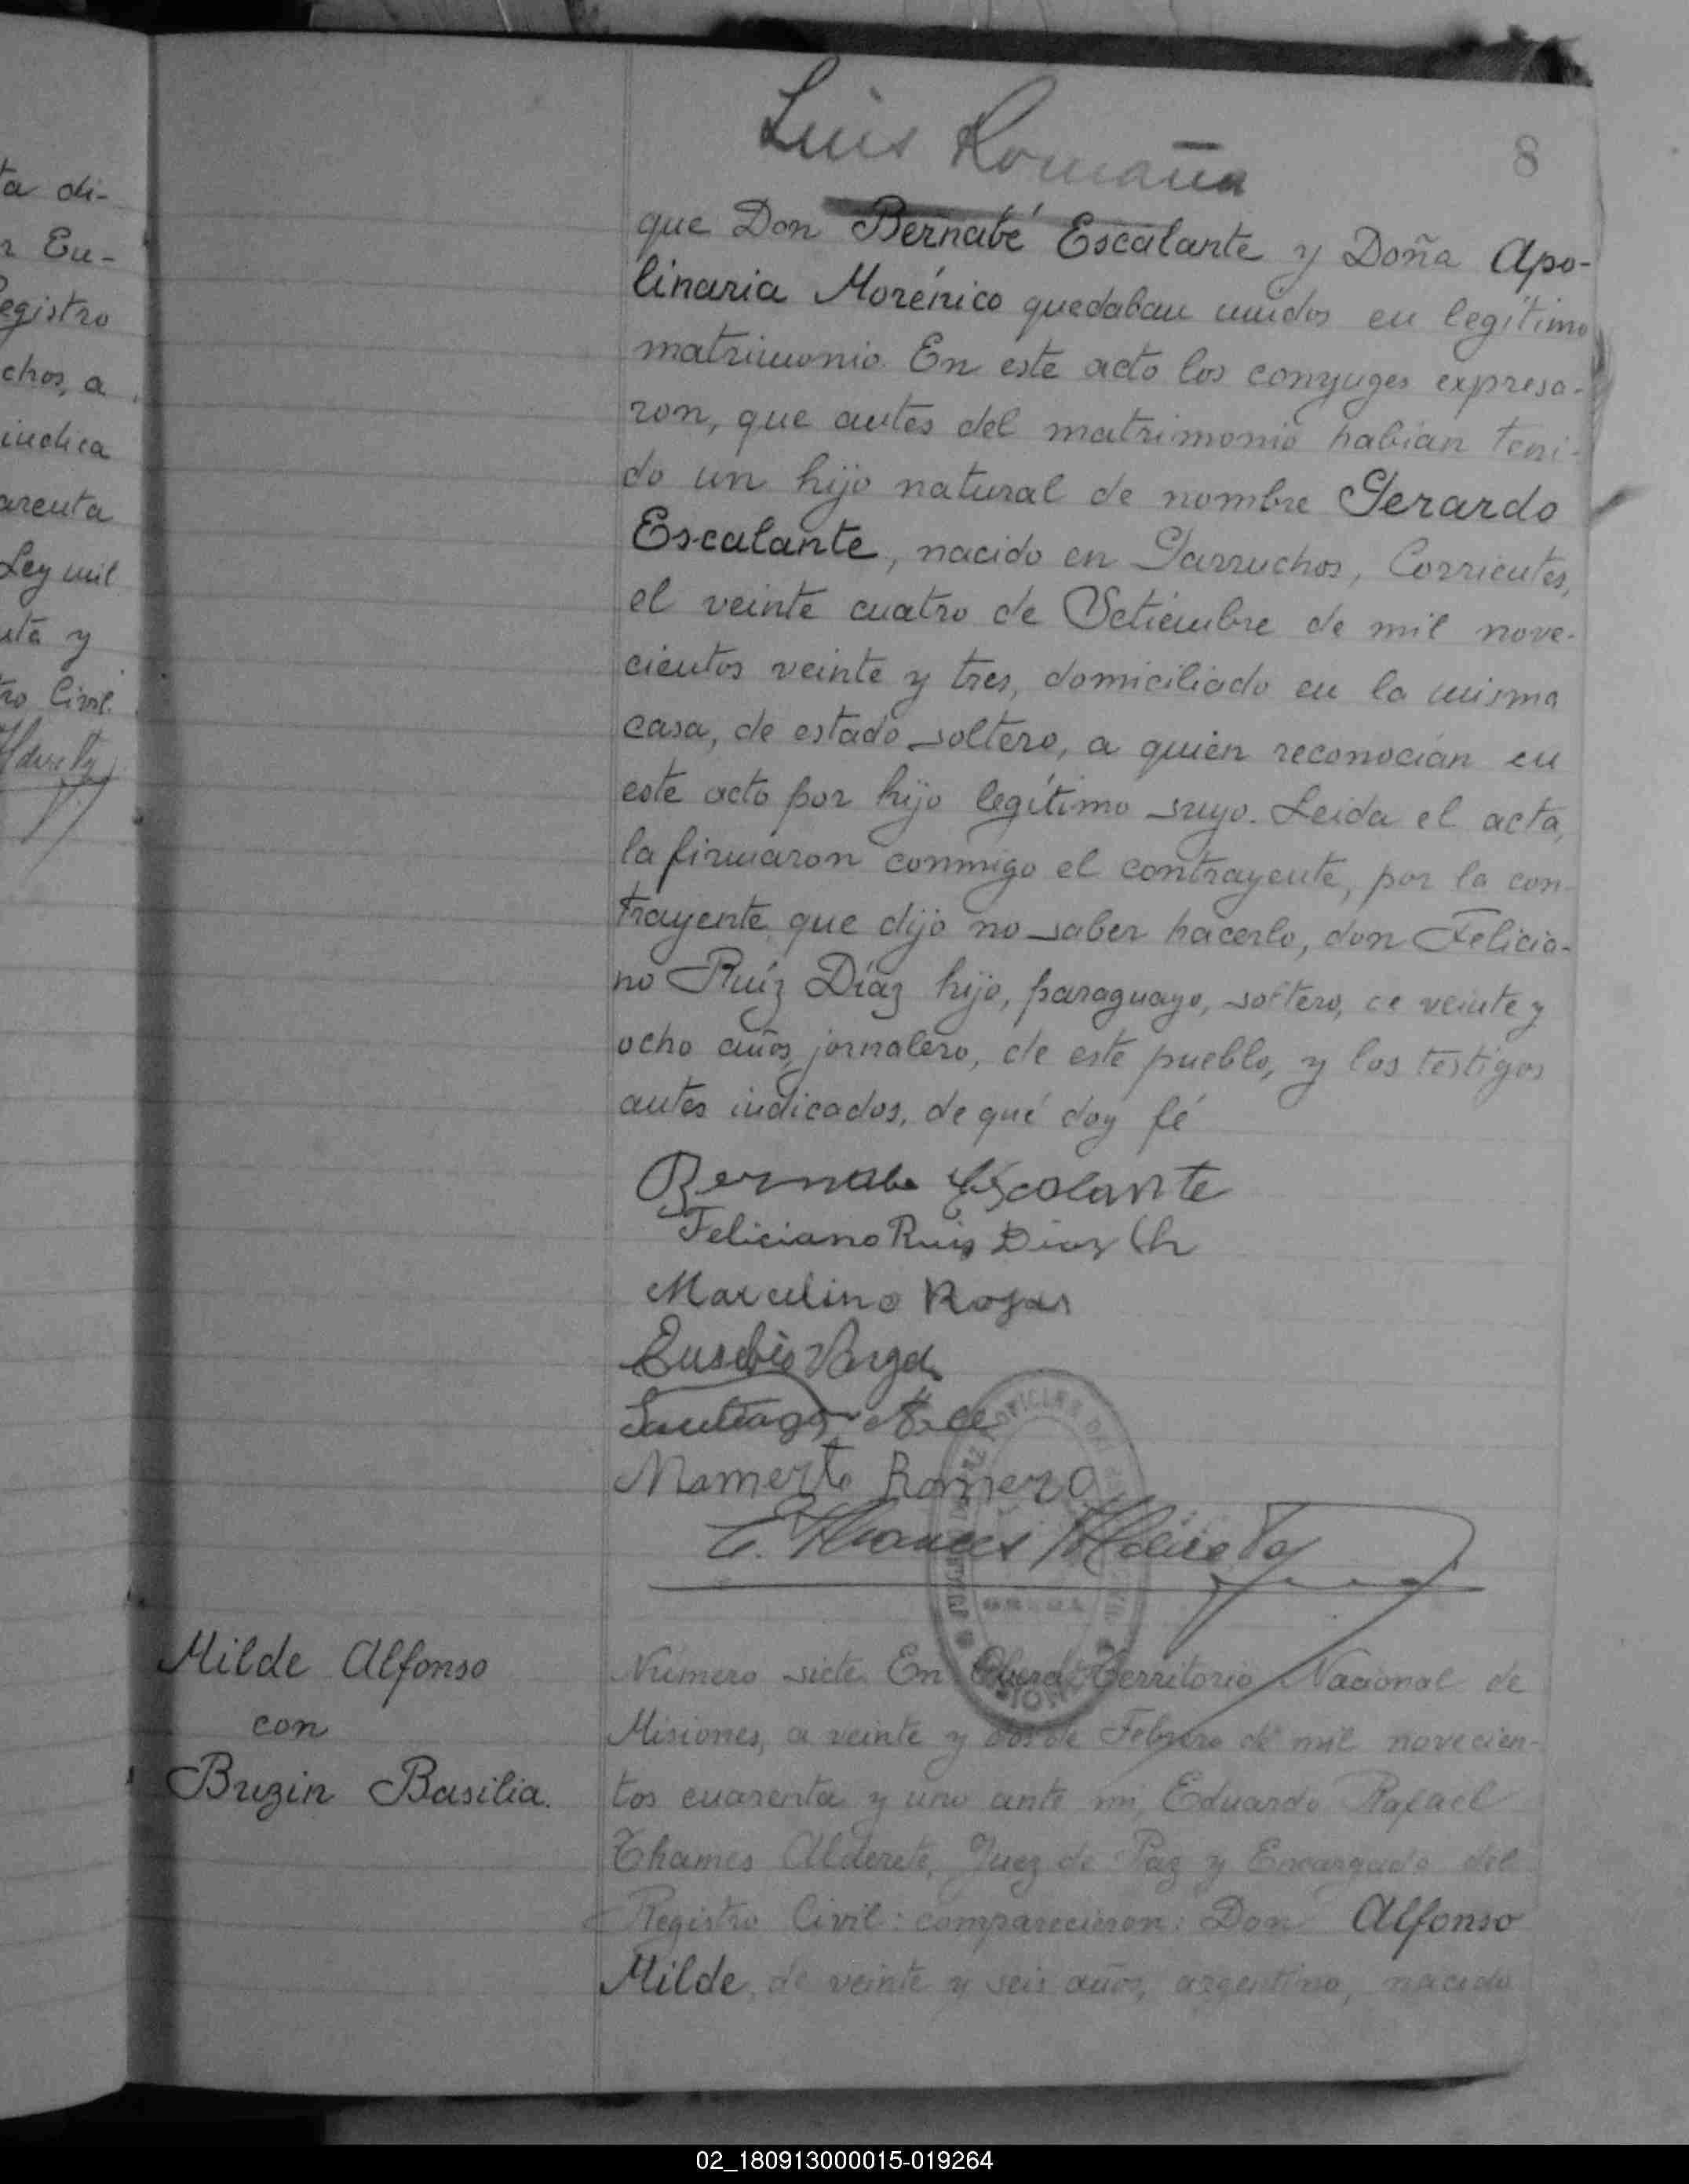 Luis Romaña
8
que Don Bernabé Escalante y Doña Apo-
linaria Morénico quedaban unidos en legítimo
matrimonio. En este acto los conyuges expresa-
ron, que antes del matrimonio habian teni-
do un hijo natural de nombre Gerardo
Escalante, nacido en Garruchos, Corrientes,
el veinte cuatro de Setiembre de mil nove-
cientos veinte y tres, domiciliado en la misma
casa, de estado soltero, a quien reconocían en
este acto por hijo legítimo suyo. Leida el acta,
la firmaron conmigo el contrayente, por la con-
trayente que dijo no saber hacerlo, don Felicia-
no Ruíz Díaz hijo, paraguayo, soltero, de veinte y
ocho años, jornalero, de este pueblo, y los testigos
antes indicados, de qué doy fé
Bernabe Escalante
Feliciano Ruis Diaz (h
Marcelino Rojas
Eusebio Varga
Santiago
Mamerto Romero
E. Thames Alderete
Milde Alfonso
con
Buzin Basilia.
Número siete. En Oberá Territorio Nacional de
Misiones, a veinte y dos de Febrero de mil novecien-
tos cuarenta y uno ante mi, Eduardo Rafael
Thames Alderete, Juez de Paz y Encargado del
Registro Civil: comparecieron: Don Alfonso
Milde, de veinte y seis años, argentino, nacido
ta di-
Eu-
egistro
chos, a
indica
arenta
Ley mil
y
Civil.
02_180913000015-019264